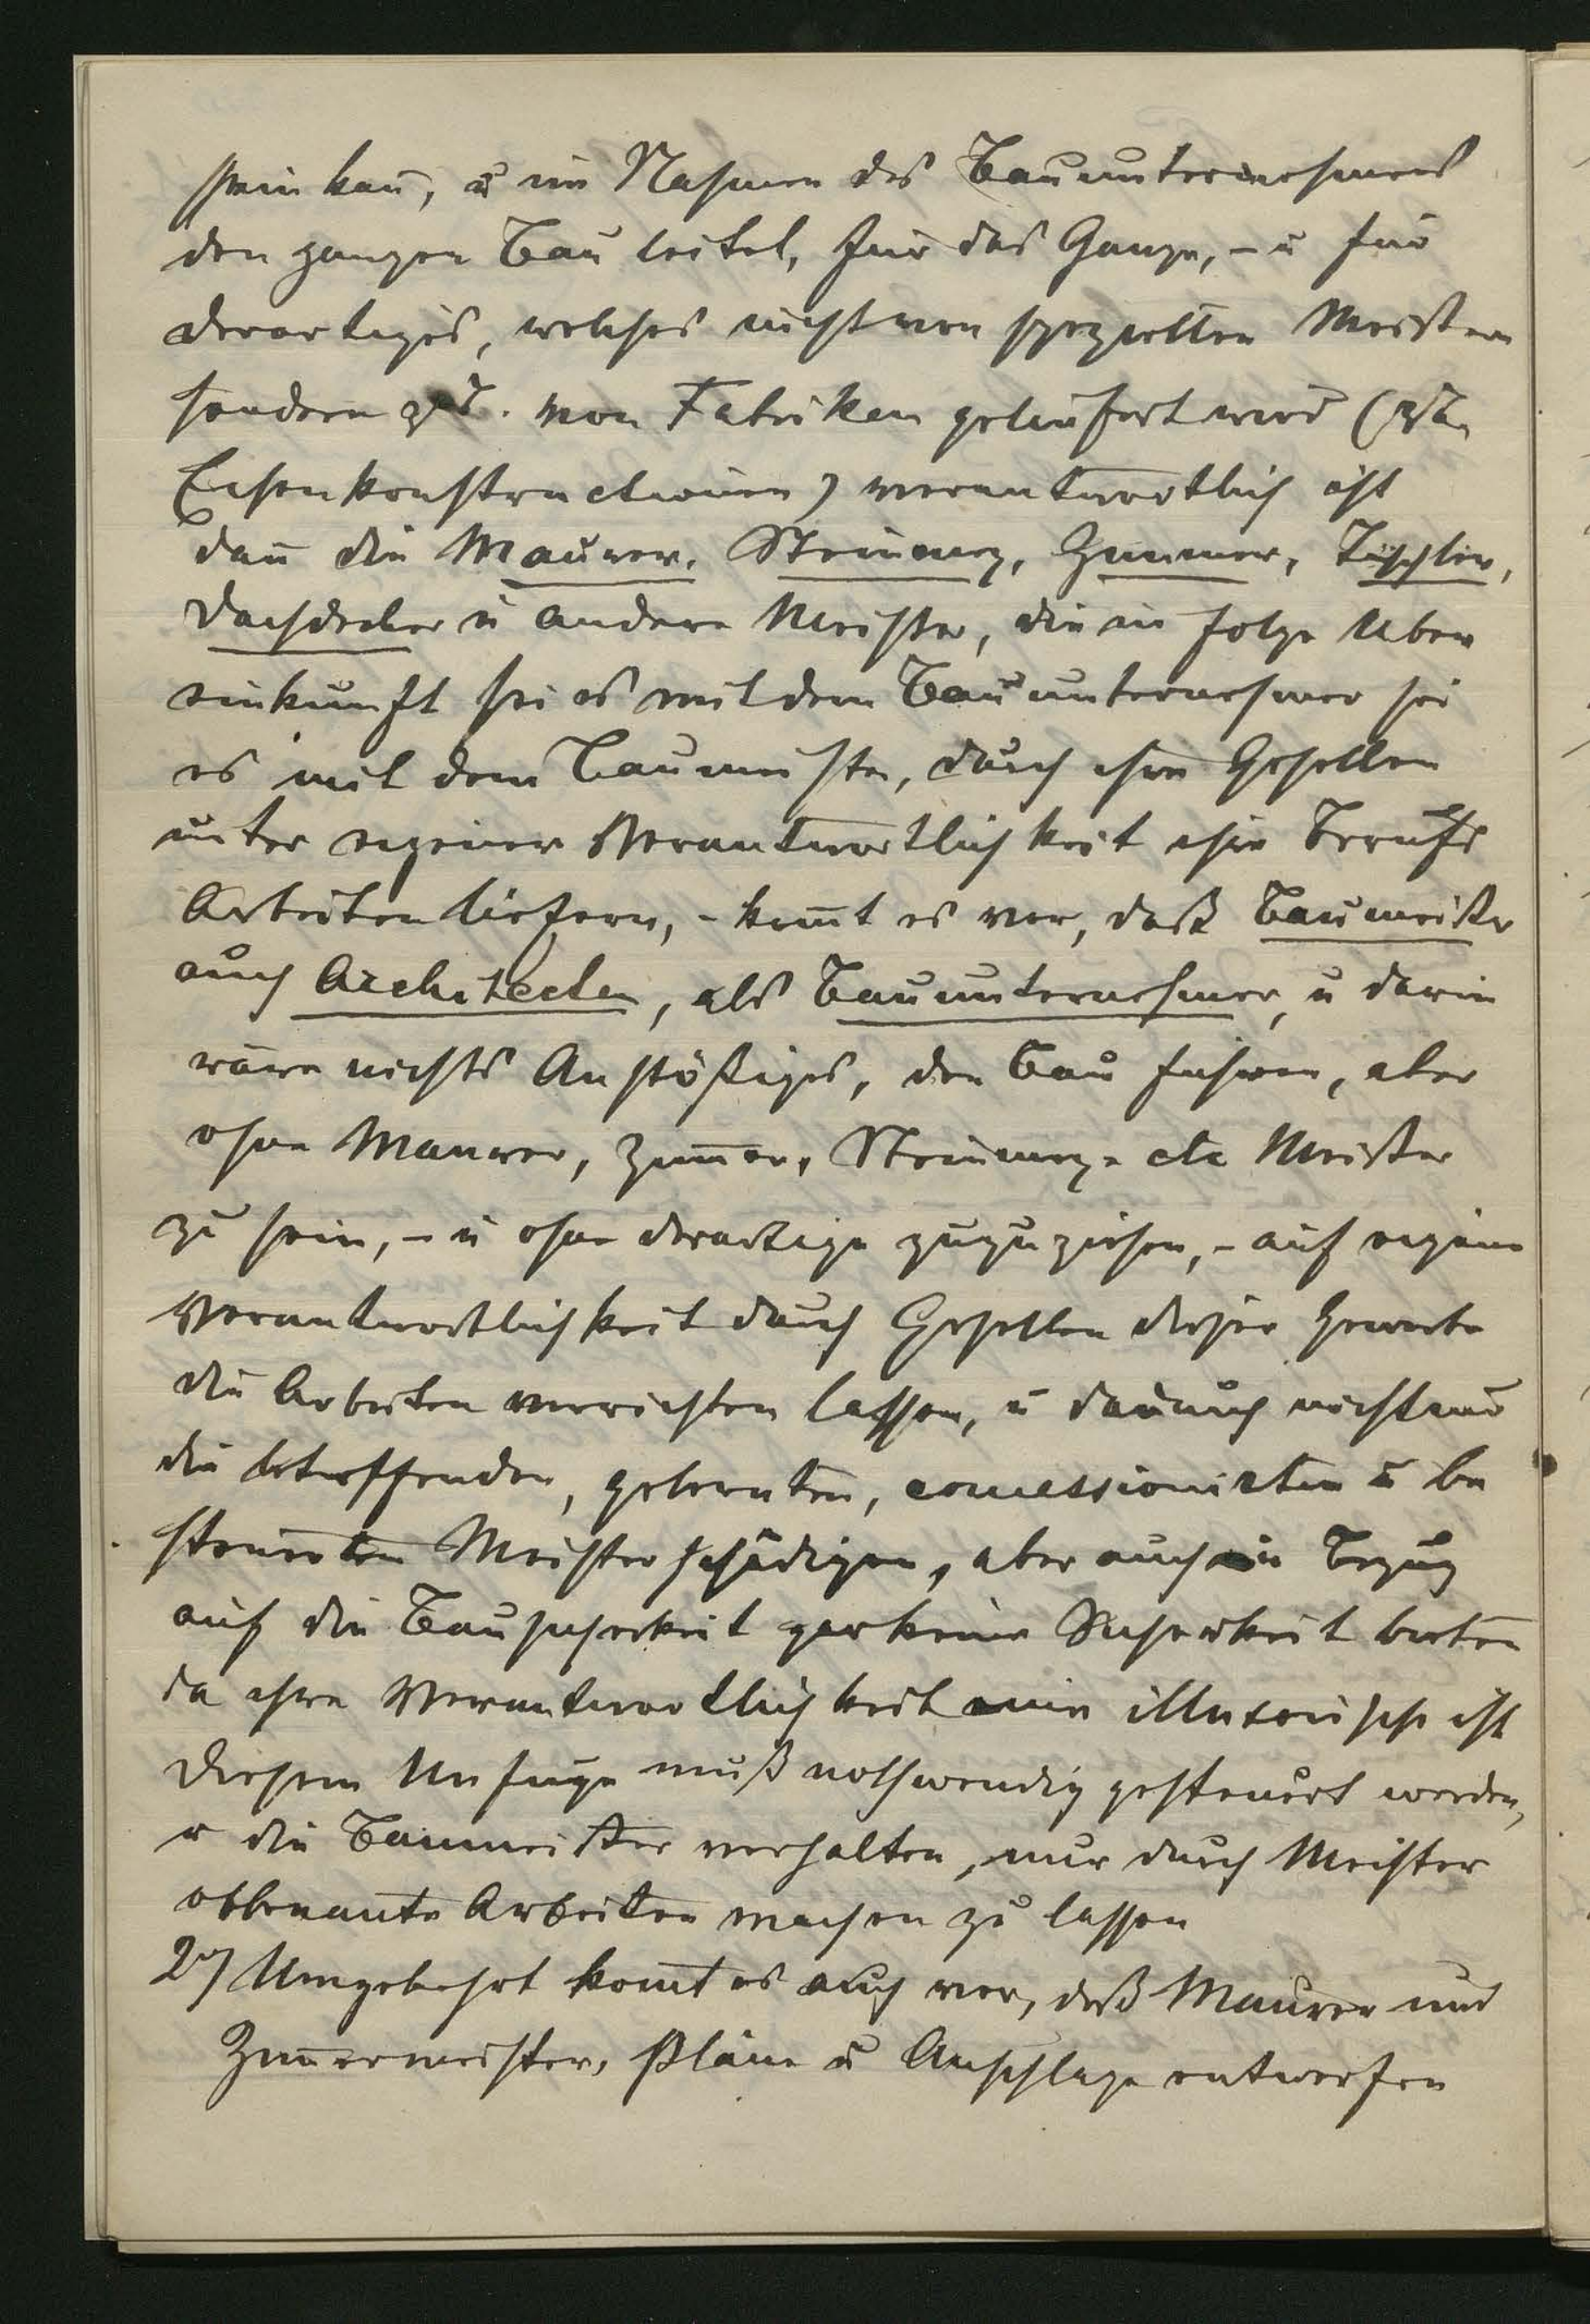 sein kan̄, u im Nahmen des Bauunternehmens
den ganzen Bau leitet, für das Ganze, – u für
derartiges, welches nicht von speziellen Meistern
sondern von Fabriken geliefert wird (z B.
Eisenkonstructionen) verantwortlich ist
dan̄ die Maurer, Steinmez, Zimmer, Tischler,
Dachdecker u andere Meister, die in Folge Über
einkunft sei es mit dem Bauunternehmer sei
es mit dem Baumeister, durch ihre Gesellen
unter eigener Verantwortlichkeit ihre Berufs
Arbeiten liefern, – kom̄t es vor, daß Baumeister
auch Architecten, als Bauunternehmer, u darin
wäre nichts Anstößiges, den Bau führen, aber
ohne Maurer, Zim̄er, Steinmez- etc Meister
zu sein, – u ohne derartige zuzuziehen, – auf eigene
Verantwortlichkeit durch Gesellen dieser Gewerbe
die Arbeiten verrichten lassen, u dadurch nicht nur
die betreffenden, gelernten, concessionirten u be
steuerten Meister schädigen, aber auch in Bezug
auf die Bausicherheit gar keine Sicherheit bieten
da ihre Verantwortlichkeit eine illusorische ist
Diesem Unfuge muß nothwendig gesteuert werden,
u die Baumeister verhalten, nur durch Meister
obbenannte Arbeiten machen zu lassen
2) Umgekehrt kom̄t es auch vor, daß Maurer und
Zim̄ermeister, Pläne u Anschläge entwerfen